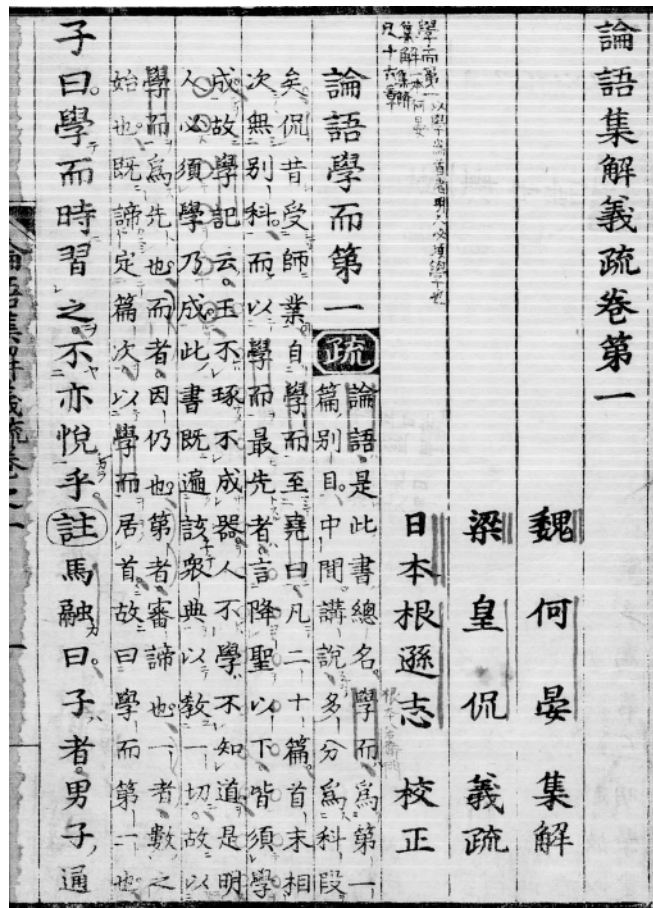 論語集解義疏卷第一
魏何晏集解
梁皇侃義疏
日本根遜志校正
學而第一
集解
凡十六章
論語學而第一疏論語是此書總名學而爲第一
篇別目中間講說多分爲科段
矣侃昔受師業自學而至堯曰凡二十篇首末相
次無別科而以學而最先者言降聖以下皆須學
成故學記云玉不琢不成器人不學不知道是明
人必須學乃成此書既遍該衆典以教一切故以
學而爲先也而者因仍也第者審諦也一者數之
始也既諦定篇次以學而居首故曰學而第一也
子曰學而時習之不亦悅乎註馬融曰子者男子通